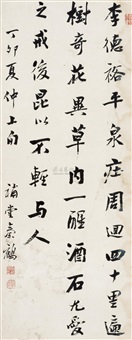 李德裕平泉庄周迴四十里遍
樹奇花異草内一醒酒石尤愛
之戒後昆以不輕与人
丁卯夏仲上旬